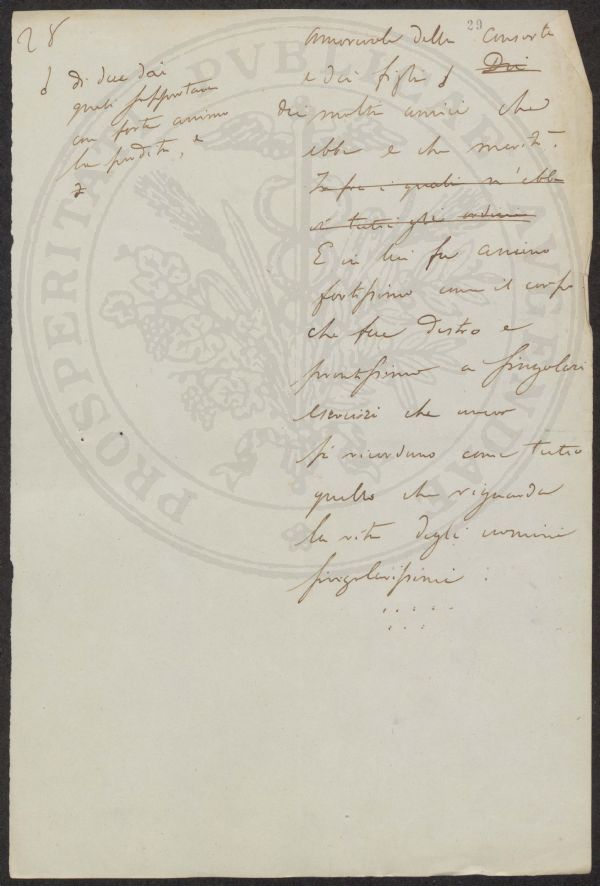 28
29
di due dei
quali sopportava
con forte animo
la perdita, e
amorevole della consorte
e dei figli Dei
dei molti amici che
ebbe e che meritò.
Tra i quali n'ebbe
tutti gli
E in lui fu animo
fortissimo come il corpo
che fue destro e
prontissimo a singolari
esercizi che ancor
si ricordano come tutto
quello che riguarda
la vita degli uomini
singolarissimi.
PROSPERITATI PVBLICAE AVGENDAE